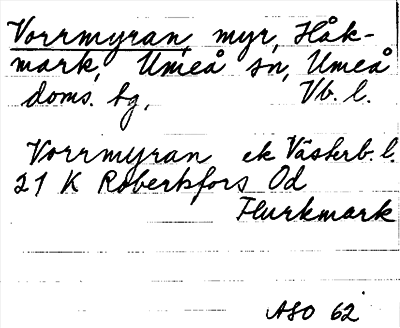 Vorrmyran, myr, Håk-
mark, Umeå sn, Umeå
doms. hg, Vb. l.
Vorrmyran ek Västerb. l.
21 K Robertsfors Od
Flurkmark
ASO 62